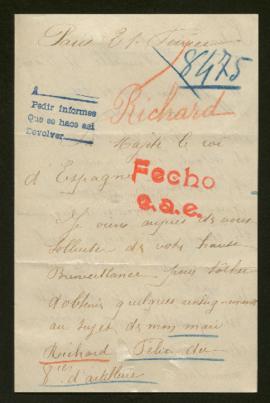 Paris
8475
A
Pedir informes
Que se hace asi
Devolver
Richard
Majesté le roi
d'Espagne
Fecho
e.a.e.
Je viens auprès de vous
solliciter de votre haute
Bienveillance pour tâcher
d'obtenir quelques
au sujet de mon mari
Richard Félix du
d'artillerie